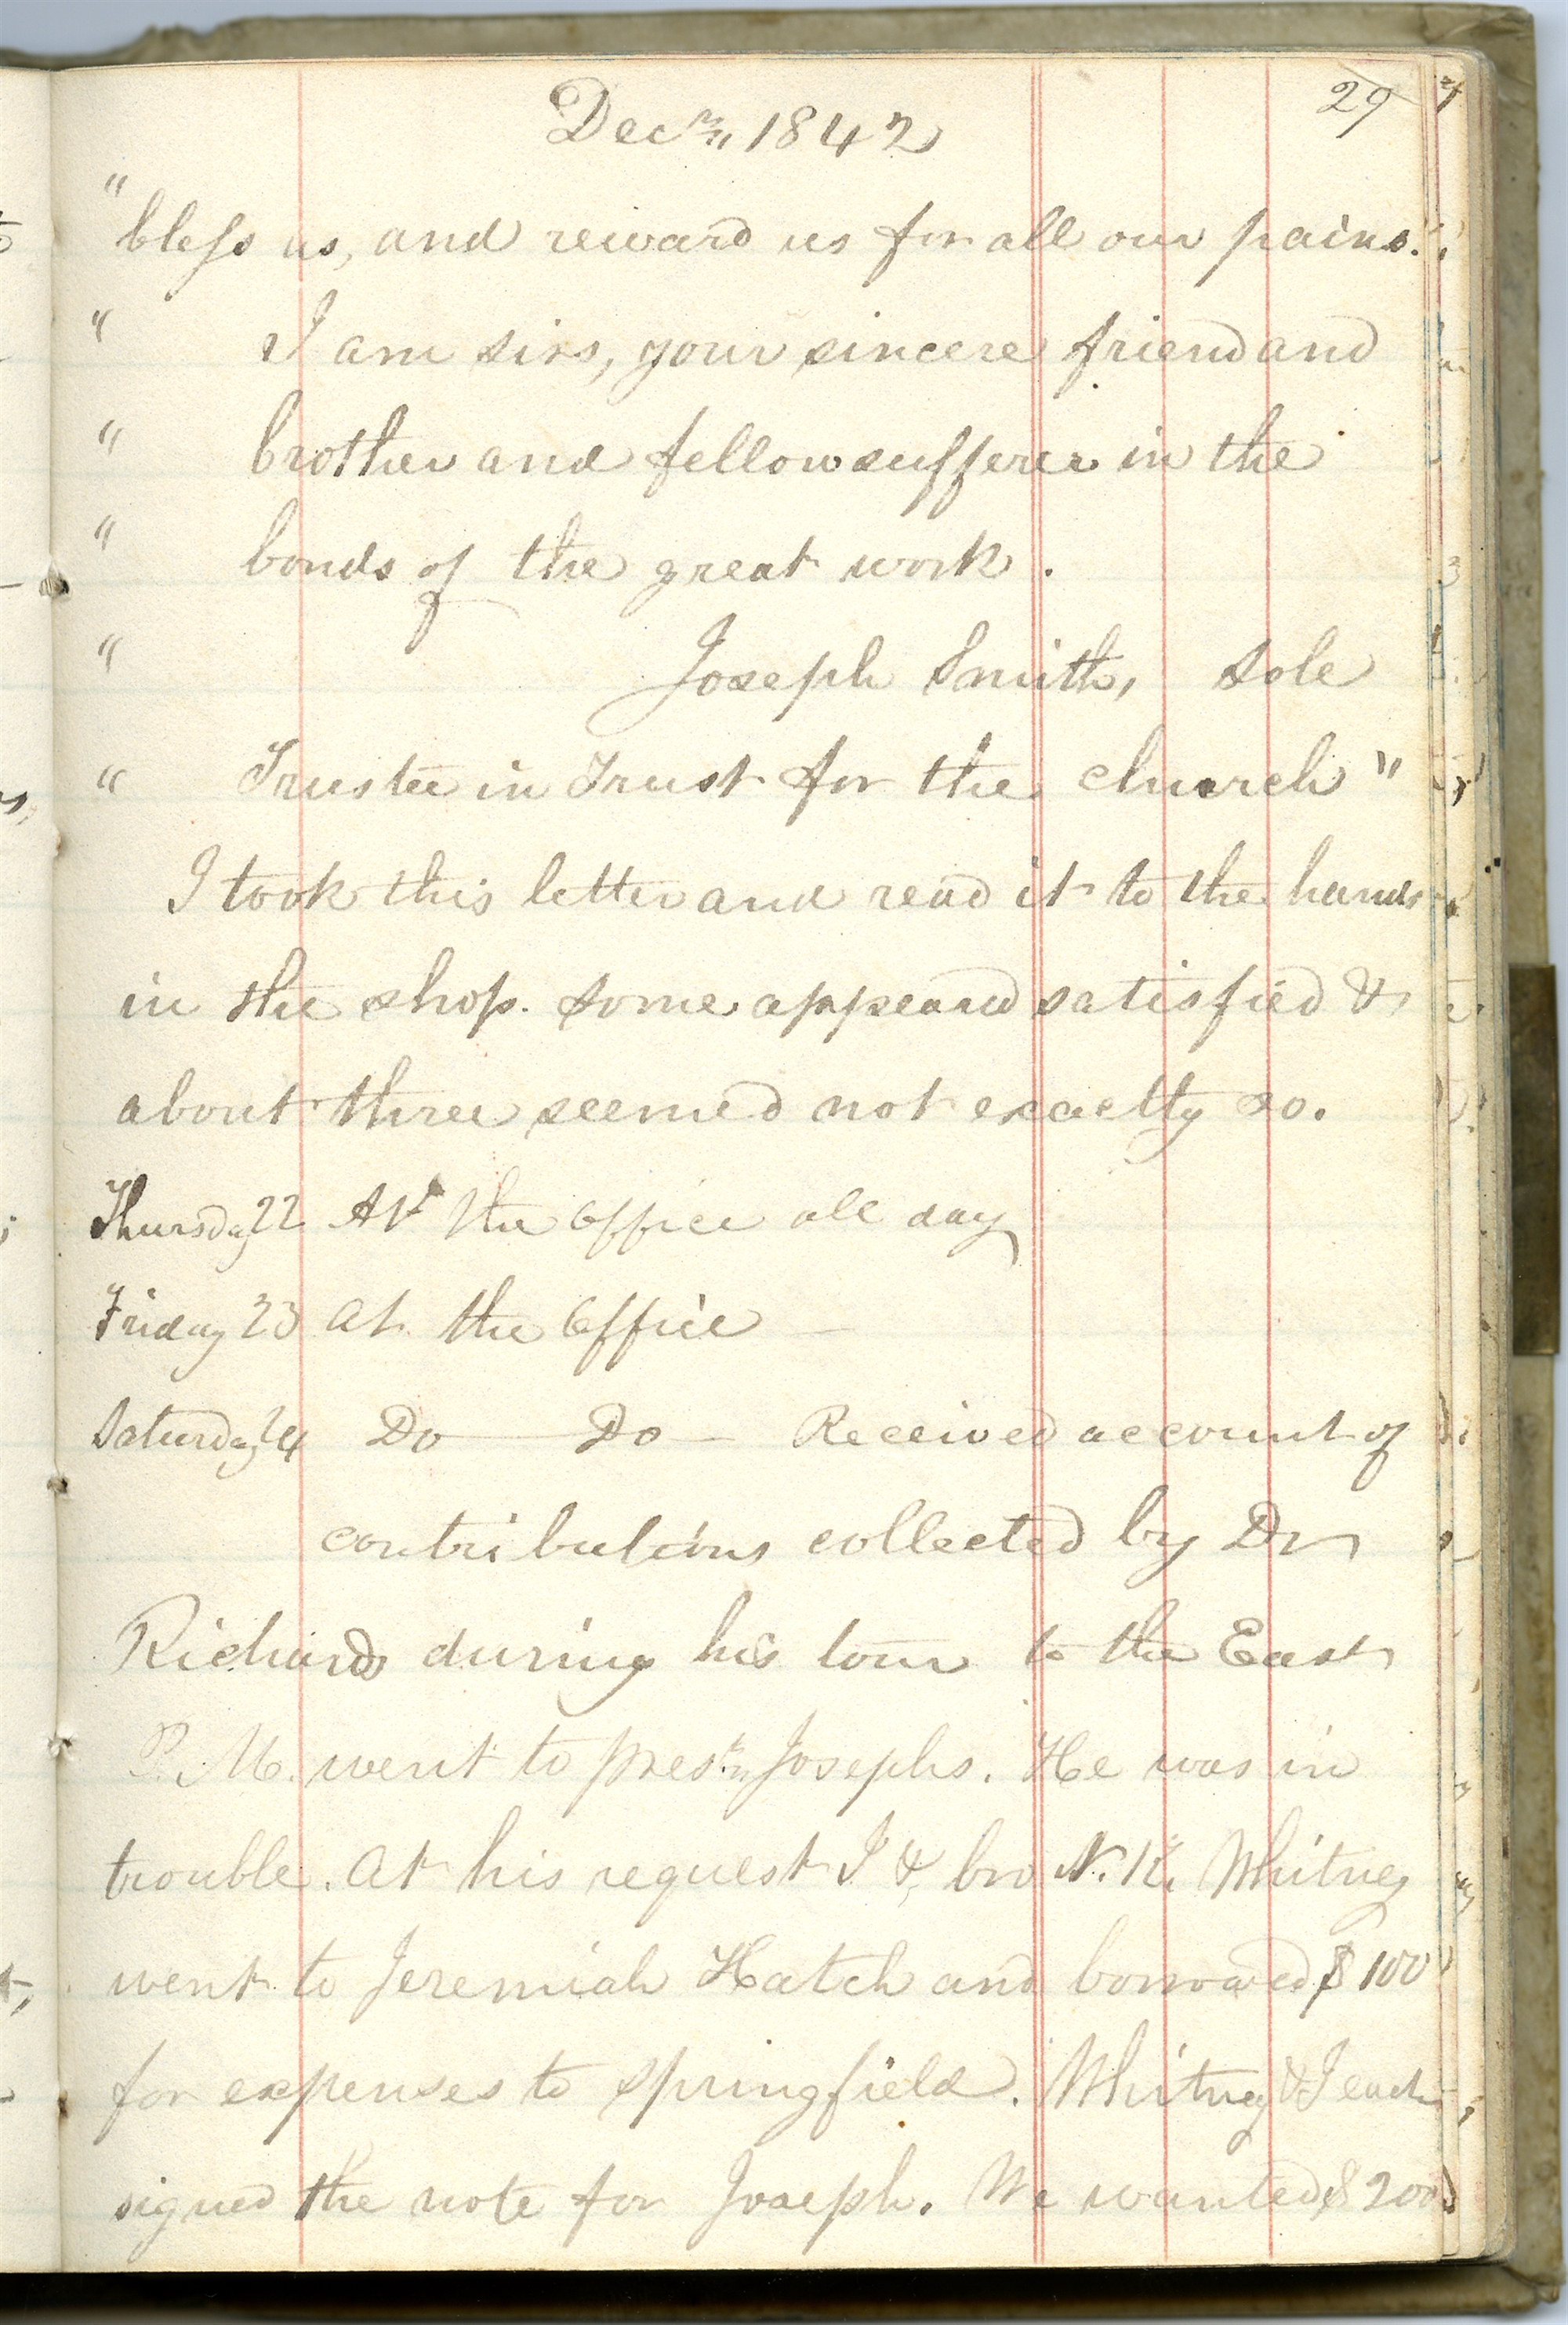 29
Decr 1842
"
"bless us, and reward us for all our pains."
" I am sirs, your sincere friend and
" brother and fellow sufferer in the
" bonds of the great work.
" Joseph Smith, Sole
" Trustee in Trust for the church"
I took this letter and read it to the hands
in the shop. Some appeared satisfied &
about three seemed not exactly so.
Thursday 22 At the Office all day
Friday 23 At the Office —
Saturday 24 Do — Do — Received account of
contributions collected by Dr
Richards during his tour to the East
P.M. went to prest Josephs. He was in
trouble. At his request I & bro N. K. Whitney
went to Jeremiah Hatch and borrowed $100
for expenses to Springfield. Whitney & I each
signed the note for Joseph. We wanted $200